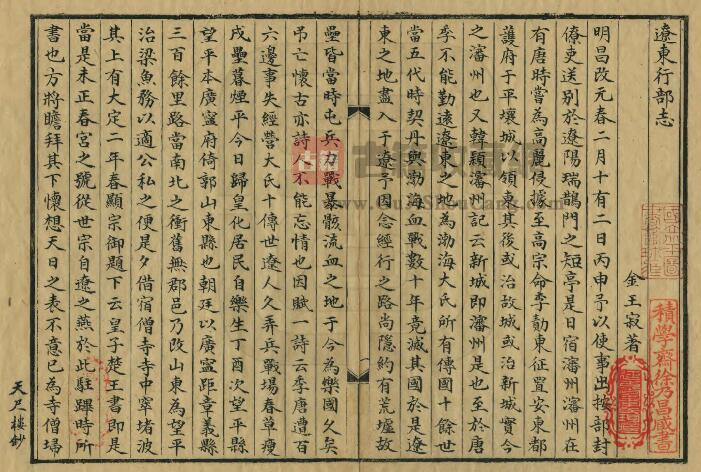 遼東行部志
金王寂著
明昌改元春二月十有二日丙申予以使事出按部封
僚吏送別於遼陽瑞鵲門之短亭是日宿瀋州瀋州在
有唐時嘗為高麗侵據至高宗命李勣東征置安東都
護府于平壤城以領東其後或治故城或治新城實今
之瀋州也又韓穎瀋州記云新城即瀋州是也至於唐
季不能勤遠遼東之地為渤海大氏所有傳國十餘世
當五代時契丹與渤海血戰數十年竟滅其國於是遼
東之地盡入于遼予因念經行之路尚隱約有荒墟故
壘皆當時屯兵力戰暴骸流血之地于今為樂國久矣
吊亡懷古亦詩人不能忘情也因賦一詩云李唐遭百
六邊事失經營大氏十傳世遼人久弄兵戰場春草瘦
戍壘暮煙平今日歸皇化居民自樂生丁酉次望平縣
望平本廣寧府倚郭山東縣也朝廷以廣寧距章義縣
三百餘里路當南北之衝舊無郡邑乃改山東為望平
治梁魚務以適公私之便是夕借宿僧寺寺中窣堵波
其上有大定二年春顯宗御題下云皇子楚王書即是
當是未正春宮之號從世宗自遼之燕於此駐蹕時所
書也方將瞻拜其下懷想天日之表不意已為寺僧埽
天尺樓鈔
積學齋徐乃昌藏書
古籍
www.GuJiShouCang.com